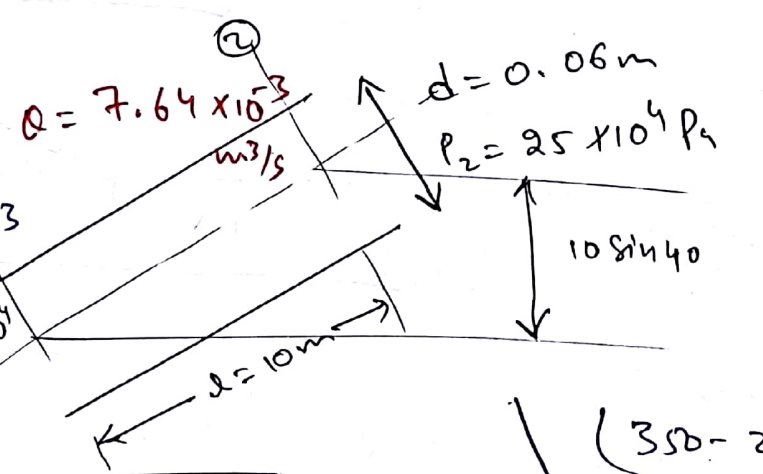 ②
Q = 7.64 × 10⁻³
m3/s
d = 0.06m
P₂ = 25 × 10⁴ Pa
3
10 Sin 40
l = 10m
(350 -